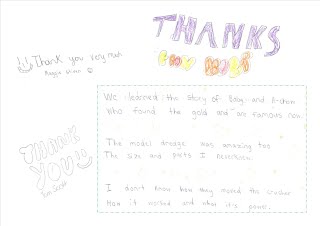 THANKS
Thank you very much
We learned the story of Bobby and A-chan
who found the gold and are famous now.
THANK
YOU!!
The model dredge was amazing too
The size and parts I
I don't know how they moved the crusher
How it worked and what it's power.